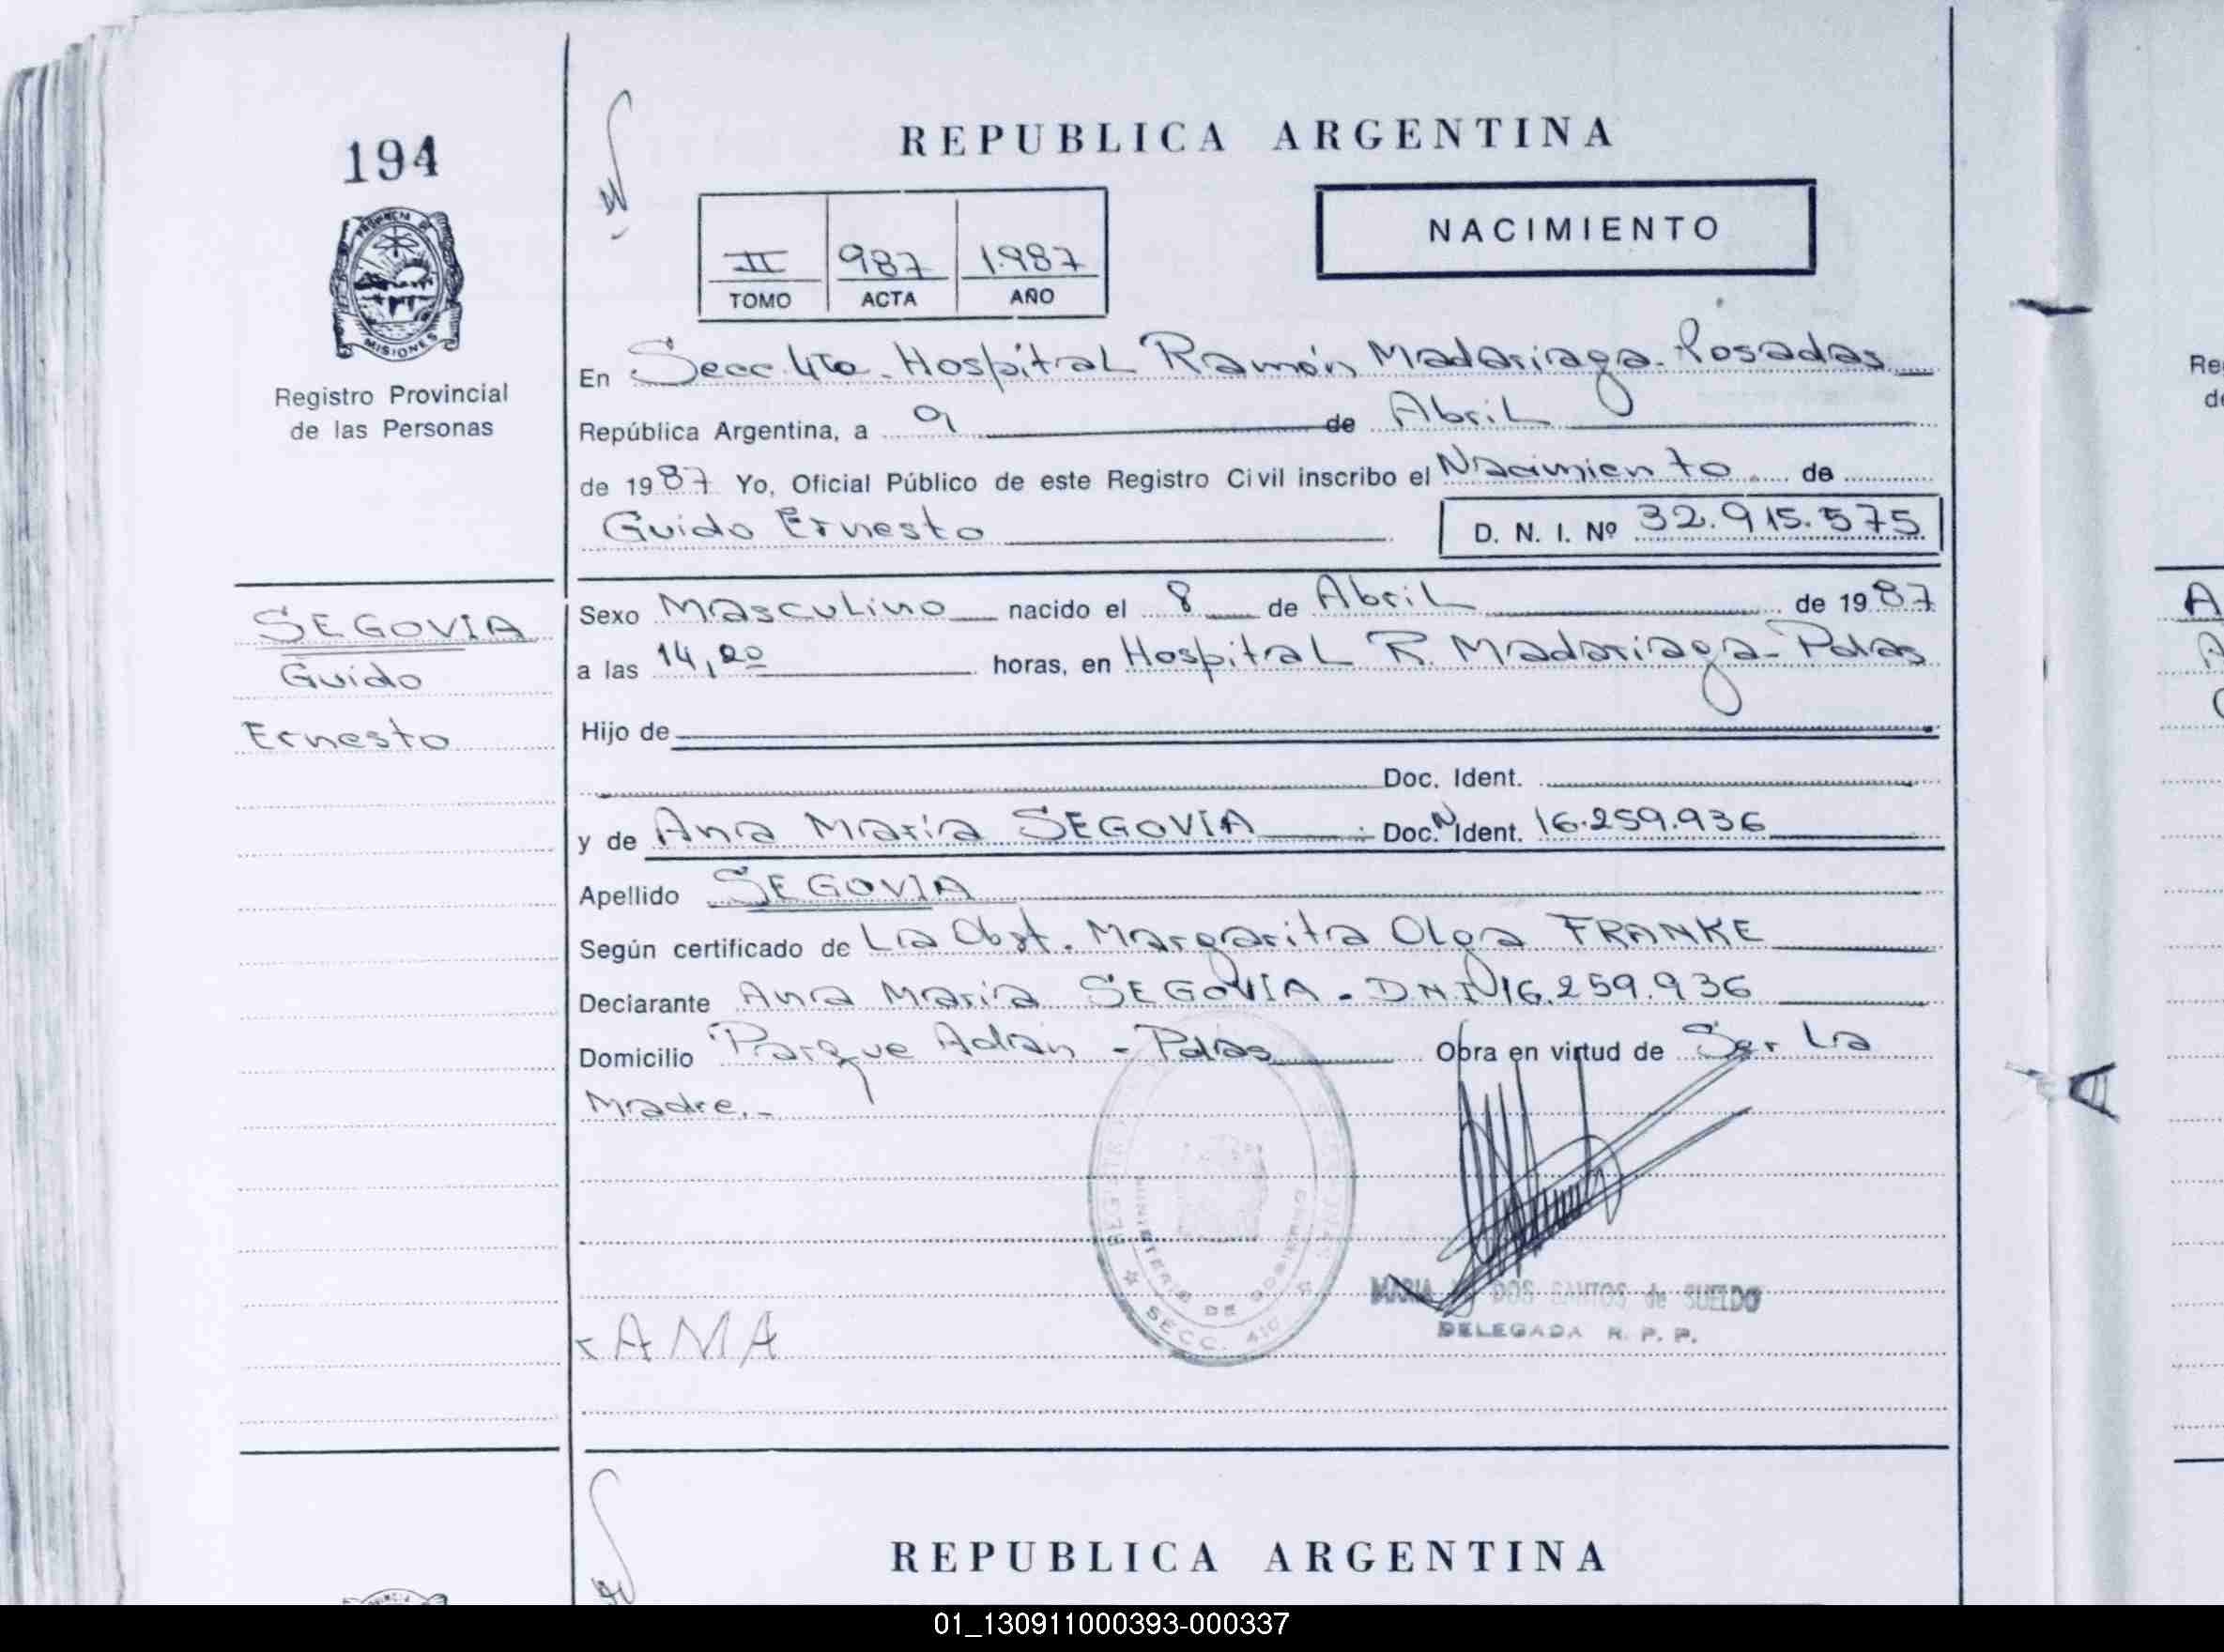 194
PROVINCIA DE
MISIONES
Registro Provincial
de las Personas
SEGOVIA
Guido
Ernesto
REPUBLICA ARGENTINA
NACIMIENTO
II 987 1.987
TOMO ACTA AÑO
En Secc. 4ta. Hospital Ramón Madariaga - Posadas
República Argentina, a 9 de Abril
de 1987 Yo, Oficial Público de este Registro Civil inscribo el Nacimiento de
Guido Ernesto D. N. I. Nº 32.915.575
Sexo Masculino nacido el 8 de Abril de 1987
a las 14,20 horas, en Hospital R. Madariaga - Pdas
Hijo de
Doc. Ident.
y de Ana María SEGOVIA Doc. N Ident. 16.259.936
Apellido SEGOVIA
Según certificado de La Obst. Margarita Olga FRANKE
Declarante Ana María SEGOVIA - DNI 16.259.936
Domicilio Parque Adán - Pdas Obra en virtud de Ser La
Madre.-
MINISTERIO DE GOBIERNO
SECC. 4ta
MARIA DOS SANTOS de SUELDO
DELEGADA R. P. P.
x AMA
REPUBLICA ARGENTINA
01_130911000393-000337